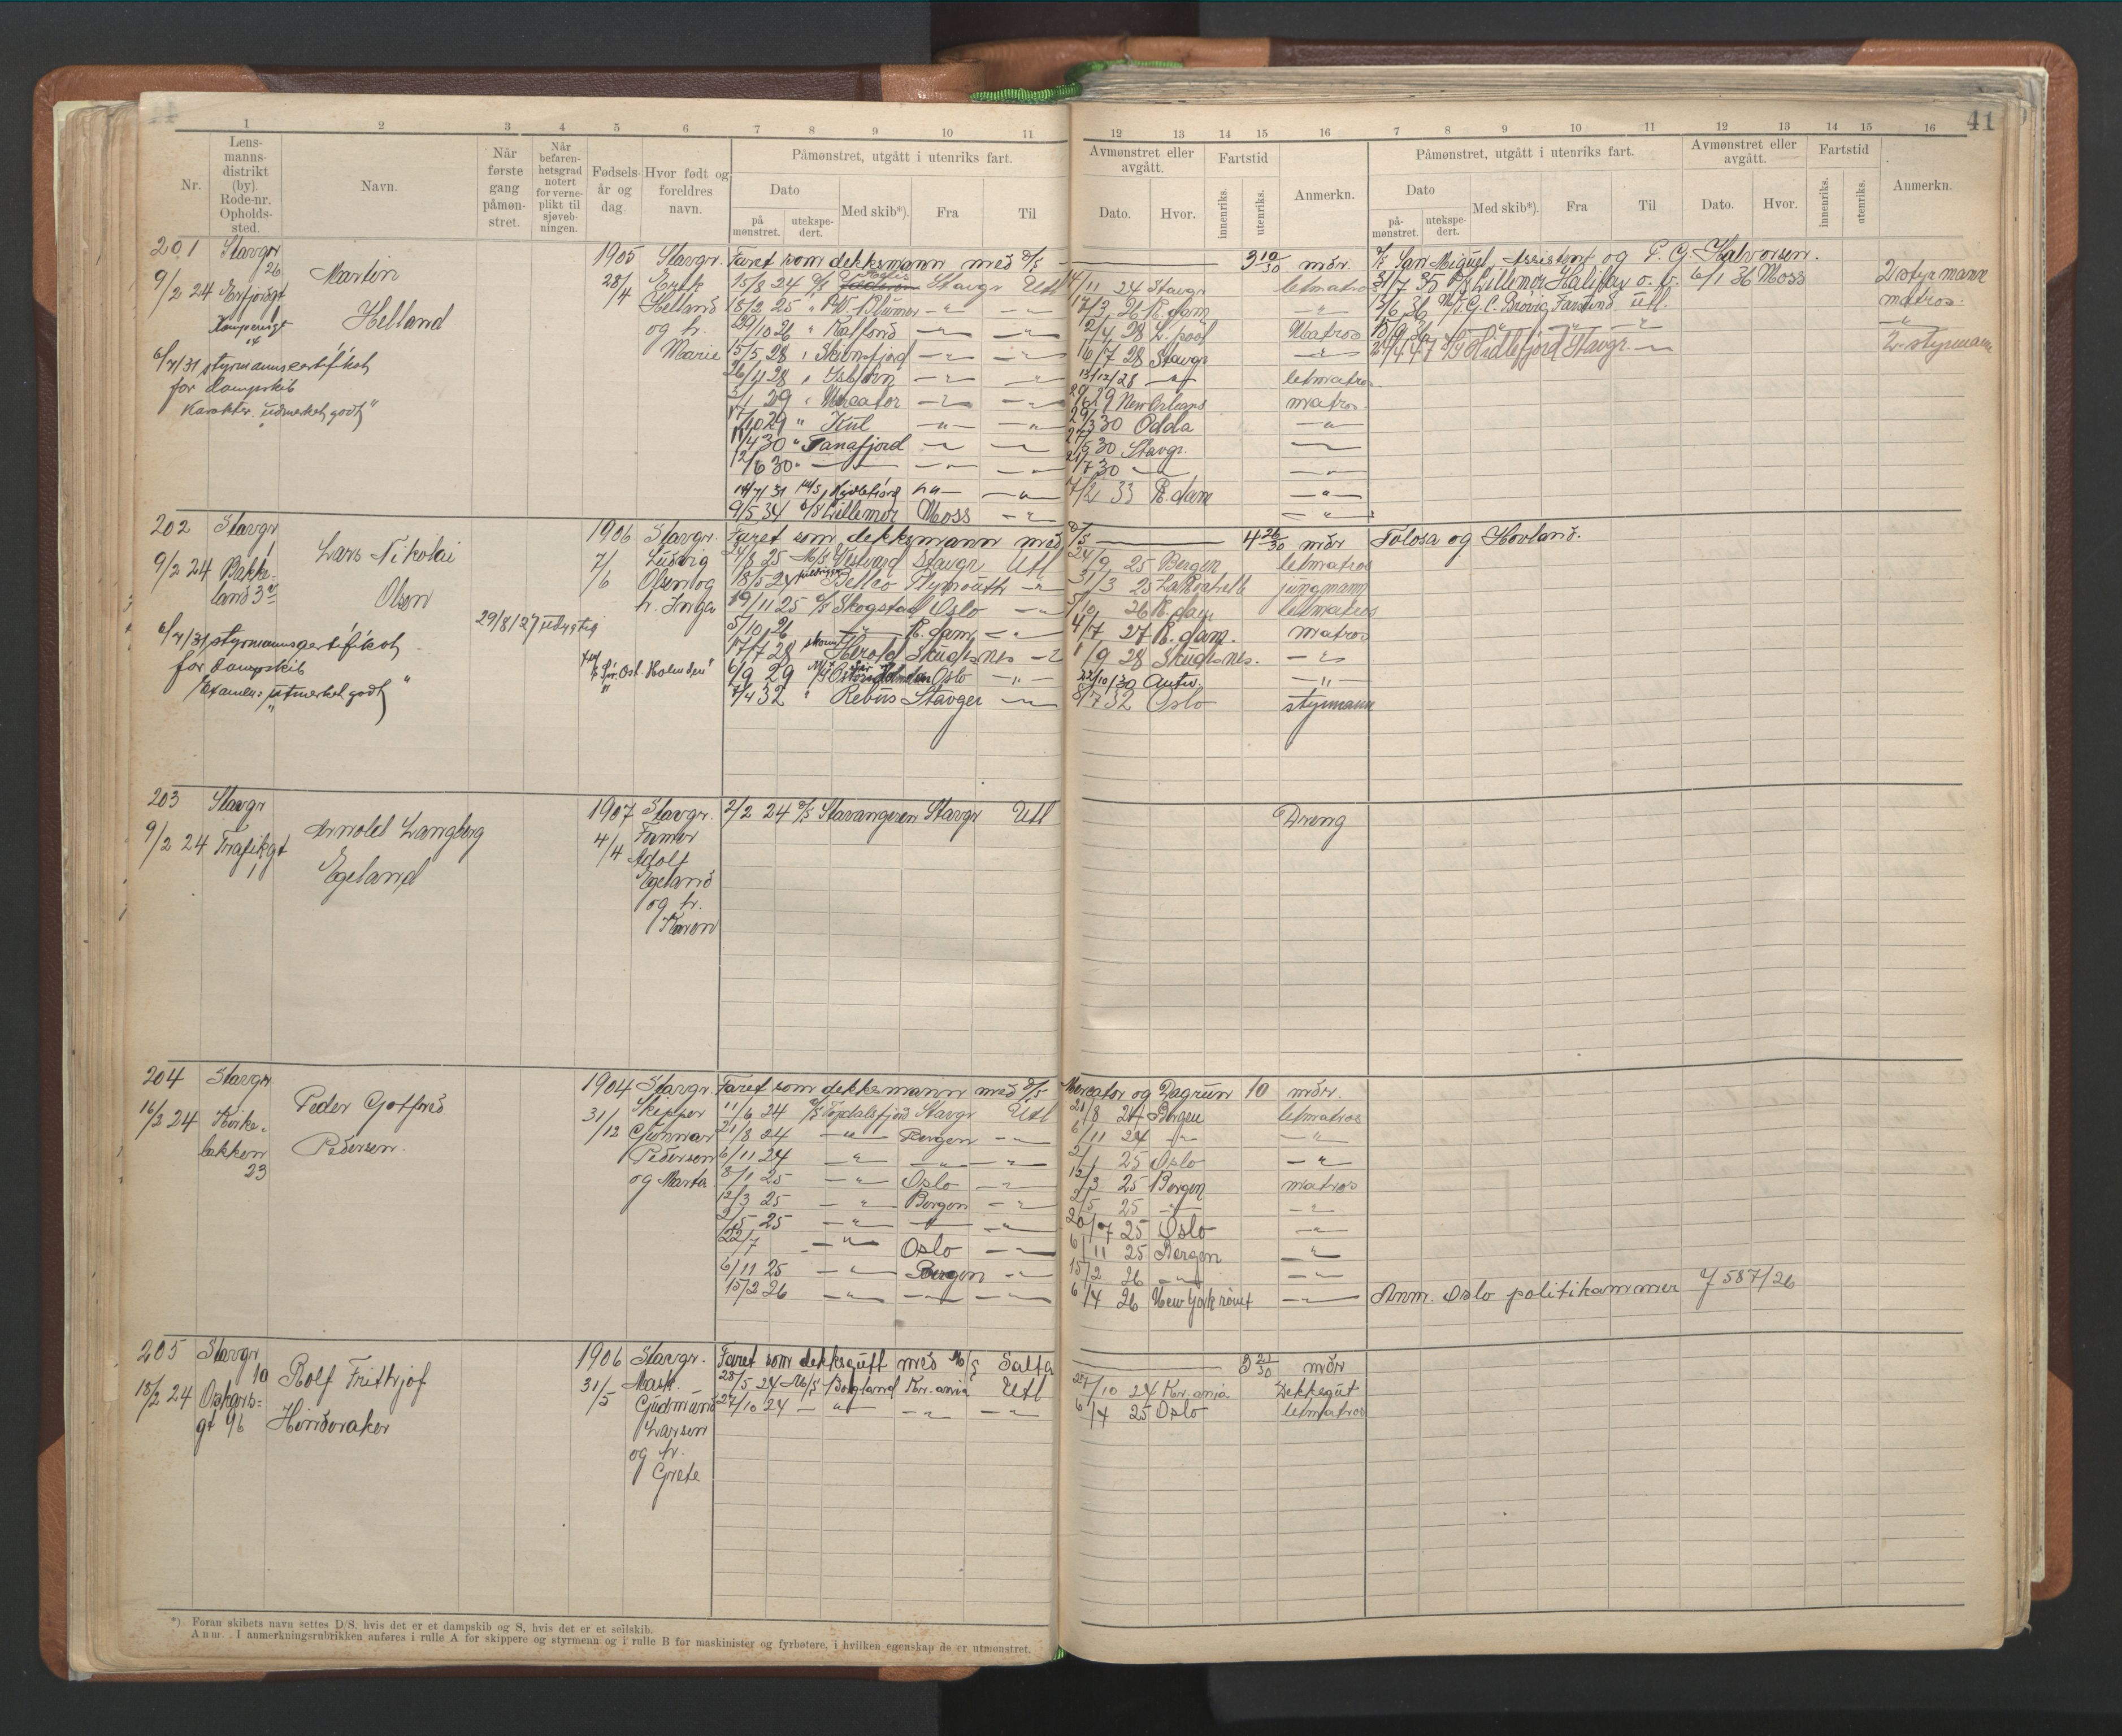 41
1 2 3 4 5 6 7 8 9 10 11 12 13 14 15 16 7 8 9 10 11 12 13 14 15 16
Nr.
Lens-
manns-
distrikt
(by).
Rode-nr.
Opholds-
sted.
Navn.
Når
første
gang
påmøn-
stret.
Når
befaren-
hetsgrad
notert
for verne-
plikt til
sjøveb-
ningen.
Fødsels-
år og
dag.
Hvor født og
foreldres
navn.
Påmønstret, utgått i utenriks fart.
Dato
på
mønstret.
utekspe-
dert.
Med skib*).
Fra
Til
Avmønstret eller
avgått.
Dato.
Hvor.
Fartstid
innenriks.
utenriks.
Anmerkn.
Påmønstret, utgått i utenriks fart.
Dato
på-
mønstret.
utekspe-
dert.
Med skib*).
Fra
Til
Avmønstret eller
avgått.
Dato.
Hvor.
Fartstid
innenriks.
utenriks.
Anmerkn.
201 Stavgr
26
9/2 24 Erfjordgt
Martin
Helland
6/7/31 styrmannscertifikat
for dampskib
Karakter: "udmerket godt"
1905 Stavgr.
28/4 Erik
Helland
og h.
Marie
Faret som dekksmann med D/S — 3 10/30 mdr.
15/8 24 D/S Stavgr Utl 11 24 Stavgr letmatros
18/2 25 " P.W. Blumer —"— —"— 17/3 26 R.dam —"—
29/10 26 " Kalfond —"— —"— 2/4 28 L.pool Matros
15/5 28 " Skiensfjord —"— —"— 16/7 28 Stavgr —"—
26/11 28 " Isbjørn —"— —"— 13/12/28 —"— letmatros
3/1 29 " Mercator —"— —"— 29 New Orleans matros
17/10 29 " Jul —"— —"— 29/3 30 Odda —"—
11/4 30 " Tanafjord —"— —"— 27/5 30 Stavgr. —"—
12/6 30 " —"— —"— —"— 21/7 30 —"— —"—
14/7/31 M/S Hidlefjord —"— —"— 7/2 33 R.dam —"—
9/5 34 D/S Lillemor Moss —"— —"—
D/S San Miguel, Assistent og P. G. Halvorsen.
31/7 35 D/S Lillemor Halifax o. b. 6/1 36 Moss 2 styrmann
13/6 36 M/T G. C. Brøvig Farsund Utl. matros.
15/9 36 —"— —"— —"— —"—
24/4 47 D/S Hidlefjord Stavgr. —"— 2. styrmann
202 Stavgr
9/2 24 Bakke-
land 3
Lars Nikolai
Olsen
6/7/31 styrmannscertifikat
for dampskib
Examen: "utmerket godt"
29/8/27 udygtig
1906 Stavgr.
7/6 Ludvig
Olsen og
h. Inga
Faret som dekksmann med D/S — 4 26/30 mdr Tolosa og Hovland.
24/8 25 M/S Vestvard Stavgr Utl 24/9 25 Bergen letmatros
18/5 24 Plymouth —"— 31/3 25 La Rochelle jungmann
19/11 25 D/S Skogstad Oslo —"— 5/10 26 R.dam letmatros
5/10 26 —"— R.dam —"— 4/7 27 R.dam. matros
17/7 28 Herold Skudesnes —"— 1/9 28 Skudesnes. —"—
6/9 29 M/S Oslo —"— 22/10/30 Antw. —"—
7/4 32 " Rebus Stavger —"— 8/7 32 Oslo styrmann
203 Stavgr
9/2 24 Trafikgt
1
Arnold Langberg
Egeland
1907 Stavgr.
4/4 Former
Adolf
Egeland
og h.
Karen
2/2 24 D/S Stavangeren Stavgr Utl Dreng
204 Stavgr.
16/2 24 Kirke-
bakken
23
Peder Gotfred
Pedersen.
1904 Stavgr.
31/12 Skipper
Gunnar
Pedersen
og Marta
Faret som dekksmann med D/S Mercator og Dagrun 10 mdr.
11/6 24 D/S Topdalsfjord Stavgr Utl 21/8 24 Bergen letmatros
21/8 24 —"— Bergen —"— 6/11 24 —"— —"—
6/11 24 —"— —"— —"— 2/1 25 Oslo —"—
8/1 25 —"— Oslo —"— 12/3 25 Bergen matros
12/3 25 —"— Bergen —"— 2/5 25 —"— —"—
2/5 25 —"— —"— —"— 20/7 25 Oslo —"—
22/7 —"— Oslo —"— 6/11 25 Bergen —"—
6/11 25 —"— Bergen —"— 15/2 26 —"— —"—
15/2 26 —"— —"— —"— 6/4 26 New York rømt —"— Anm. Oslo politikammer 7587/26
205 Stavgr
10
18/2 24 Oskars-
gt 96
Rolf Frithjof
Hindraker
1906 Stavgr.
31/5 Mask.
Gudmund
Larsen
og h.
Grete
Faret som dekksgutt med M/S Salta — 3 21/30 mdr
28/5 24 M/S Borgland Kr.ania Utl 27/10 24 Kr.ania Dekksgut
27/10 24 —"— —"— —"— 6/4 25 Oslo letmatros
*) Foran skibets navn settes D/S, hvis det er et dampskib og S, hvis det er et seilskib.
Anm. I anmerkningsrubrikken anføres i rulle A for skippere og styrmenn og i rulle B for maskinister og fyrbøtere, i hvilken egenskap de er utmønstret.